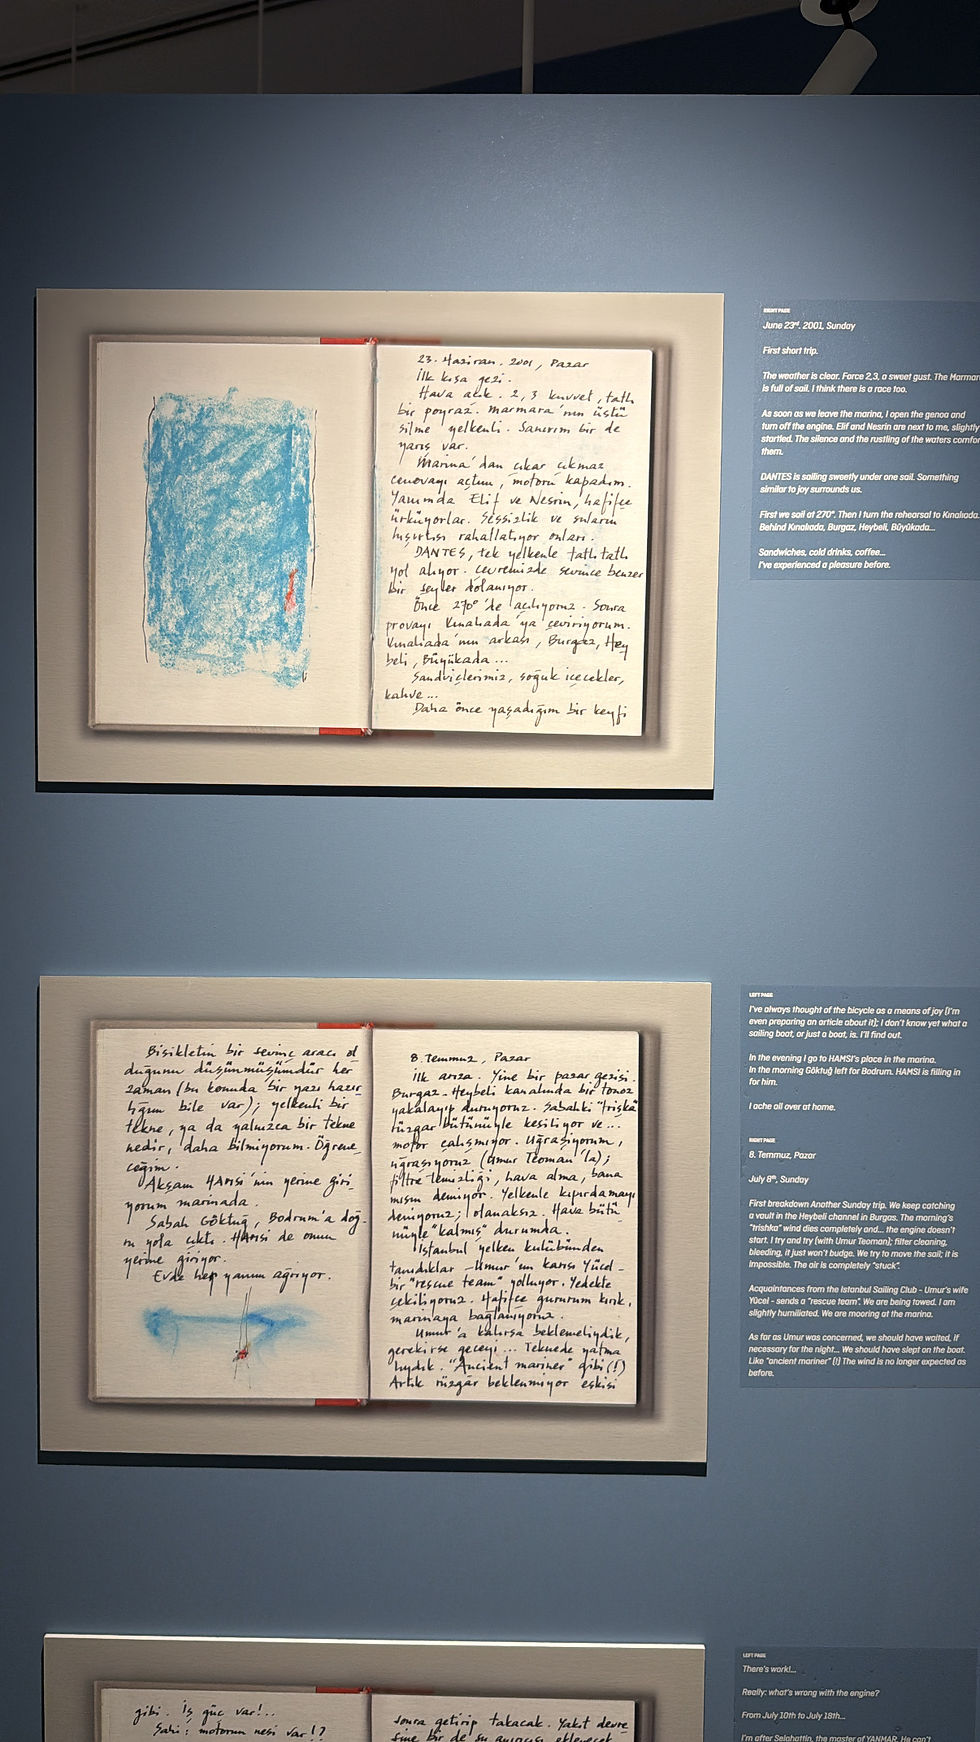 23. Haziran. 2001, Pazar
İlk kısa gezi.
Hava açık. 2, 3 kuvvet, tatlı
bir poyraz. Marmara'nın üstü
silme yelkenli. Sanırım bir de
yarış var.
Marina'dan çıkar çıkmaz
cenovayı açtım, motoru kapadım.
Yanımda Elif ve Nesrin, hafifçe
ürküyorlar. Sessizlik ve suların
hışırtısı rahatlatıyor onları.
DANTES, tek yelkenle tatlı tatlı
yol alıyor. Çevremizde sevince benzer
bir şeyler dolanıyor.
Önce 270° 'de açılıyoruz. Sonra
provayı Kınalıada'ya çeviriyorum.
Kınalıada'nın arkası, Burgaz, Hey
beli, Büyükada...
Sandviçlerimiz, soğuk içecekler,
kahve...
Daha önce yaşadığım bir keyfi
RIGHT PAGE
June 23rd. 2001, Sunday
First short trip.
The weather is clear. Force 2,3, a sweet gust. The Marmar
is full of sail. I think there is a race too.
As soon as we leave the marina, I open the genoa and
turn off the engine. Elif and Nesrin are next to me, slightly
startled. The silence and the rustling of the waters comfor
them.
DANTES is sailing sweetly under one sail. Something
similar to joy surrounds us.
First we sail at 270°. Then I turn the rehearsal to Kınalıada.
Behind Kınalıada, Burgaz, Heybeli, Büyükada...
Sandwiches, cold drinks, coffee...
I've experienced a pleasure before.
Bisikletin bir sevinç aracı ol
duğunu düşünmüşümdür her
zaman (bu konuda bir yazı hazır
lığım bile var); yelkenli bir
tekne, ya da yalnızca bir tekne
nedir, daha bilmiyorum. Öğrene
ceğim.
Akşam HAMSİ'nin yerine giri
yorum marinada.
Sabah Göktuğ, Bodrum'a doğ-
ru yola çıktı. HAMSİ de onun
yerine giriyor.
Evde her yanım ağrıyor.
8. Temmuz, Pazar
İlk arıza. Yine bir pazar gezisi.
Burgaz-Heybeli kanalında bir tonoz
yakalayıp duruyoruz. Sabahki "trişka"
rüzgar bütünüyle kesiliyor ve...
motor çalışmıyor. Uğraşıyorum,
uğraşıyoruz (Umur Teoman'la);
filtre temizliği, hava alma, bana
mısın demiyor. Yelkenle kıpırdamayı
deniyoruz; olanaksız. Hava bütü
nüyle "kalmış" durumda.
İstanbul yelken kulübünden
tanıdıklar -Umur'un karısı Yücel-
bir "rescue team" yolluyor. Yedekte
çekiliyoruz. Hafifçe gururum kırık,
marinaya bağlanıyoruz.
Umur'a kalırsa beklemeliydik,
gerekirse geceyi... Teknede yatma
lıydık. "Ancient mariner" gibi (!)
Artık rüzgâr beklenmiyor eskisi
LEFT PAGE
I've always thought of the bicycle as a means of joy (I'm
even preparing an article about it); I don't know yet what a
sailing boat, or just a boat, is. I'll find out.
In the evening I go to HAMSI's place in the marina.
In the morning Göktuğ left for Bodrum. HAMSI is filling in
for him.
I ache all over at home.
RIGHT PAGE
8. Temmuz, Pazar
July 8th, Sunday
First breakdown Another Sunday trip. We keep catching
a vault in the Heybeli channel in Burgas. The morning's
"trishka" wind dies completely and... the engine doesn't
start. I try and try (with Umur Teoman); filter cleaning,
bleeding, it just won't budge. We try to move the sail; it is
impossible. The air is completely "stuck".
Acquaintances from the Istanbul Sailing Club - Umur's wife
Yücel - sends a "rescue team". We are being towed. I am
slightly humiliated. We are mooring at the marina.
As far as Umur was concerned, we should have waited, if
necessary for the night... We should have slept on the boat.
Like "ancient mariner" (!) The wind is no longer expected as
before.
gibi. İş güç var!..
Sahi: motorun nesi var!?
sonra getirip takacak. Yakıt devre
sine bir de su ayırıcı eklenecek
LEFT PAGE
There's work!...
Really: what's wrong with the engine?
From July 10th to July 18th...
I'm after Selahattin, the master of YANMAR. He can't